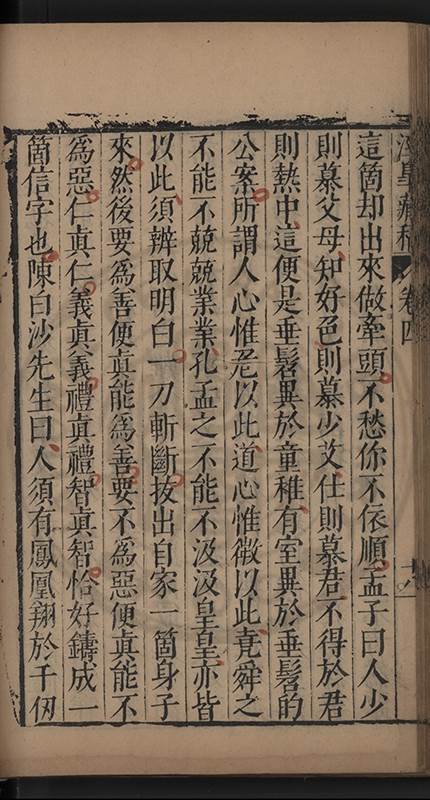 涇皐藏稿 卷四
這箇却出來做牽頭不愁你不依順孟子曰人少
則慕父母知好色則慕少艾仕則慕君不得於君
則熱中這便是垂髫異於童稚有室異於垂髫的
公案所謂人心惟危以此道心惟微以此堯舜之
不能不兢兢業業孔孟之不能不汲汲皇皇亦皆
以此須辨取明白一刀斬斷拔出自家一箇身子
來然後要爲善便眞能爲善要不爲惡便眞能不
爲惡仁眞仁義眞義禮眞禮智眞智恰好鑄成一
箇信字也陳白沙先生曰人須有鳳凰翔於千仞